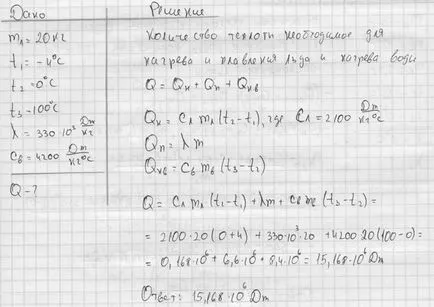 Дано
m₁=20кг
t₁=-4°C
t₂=0°C
t₃=100°C
λ = 330·10³ Дж/кг
Cв=4200 Дж/кг°C
Q-?
Решение
Количество теплоты необходимое для
нагрева и плавления льда и нагрева воды
Q = Qн + Qп + Qнв
Qн = Cл mл (t₂-t₁), где Cл=2100 Дж/кг°C
Qп = λ m
Qнв = Cв mв (t₃-t₂)
Q = Cл mл (t₂-t₁) + λm + Cв m (t₃-t₂) =
= 2100·20 (0+4) + 330·10³·20 + 4200·20(100-0) =
= 0,168·10⁶ + 6,6·10⁶ + 8,4·10⁶ = 15,168·10⁶ Дж
Ответ: 15,168·10⁶ Дж